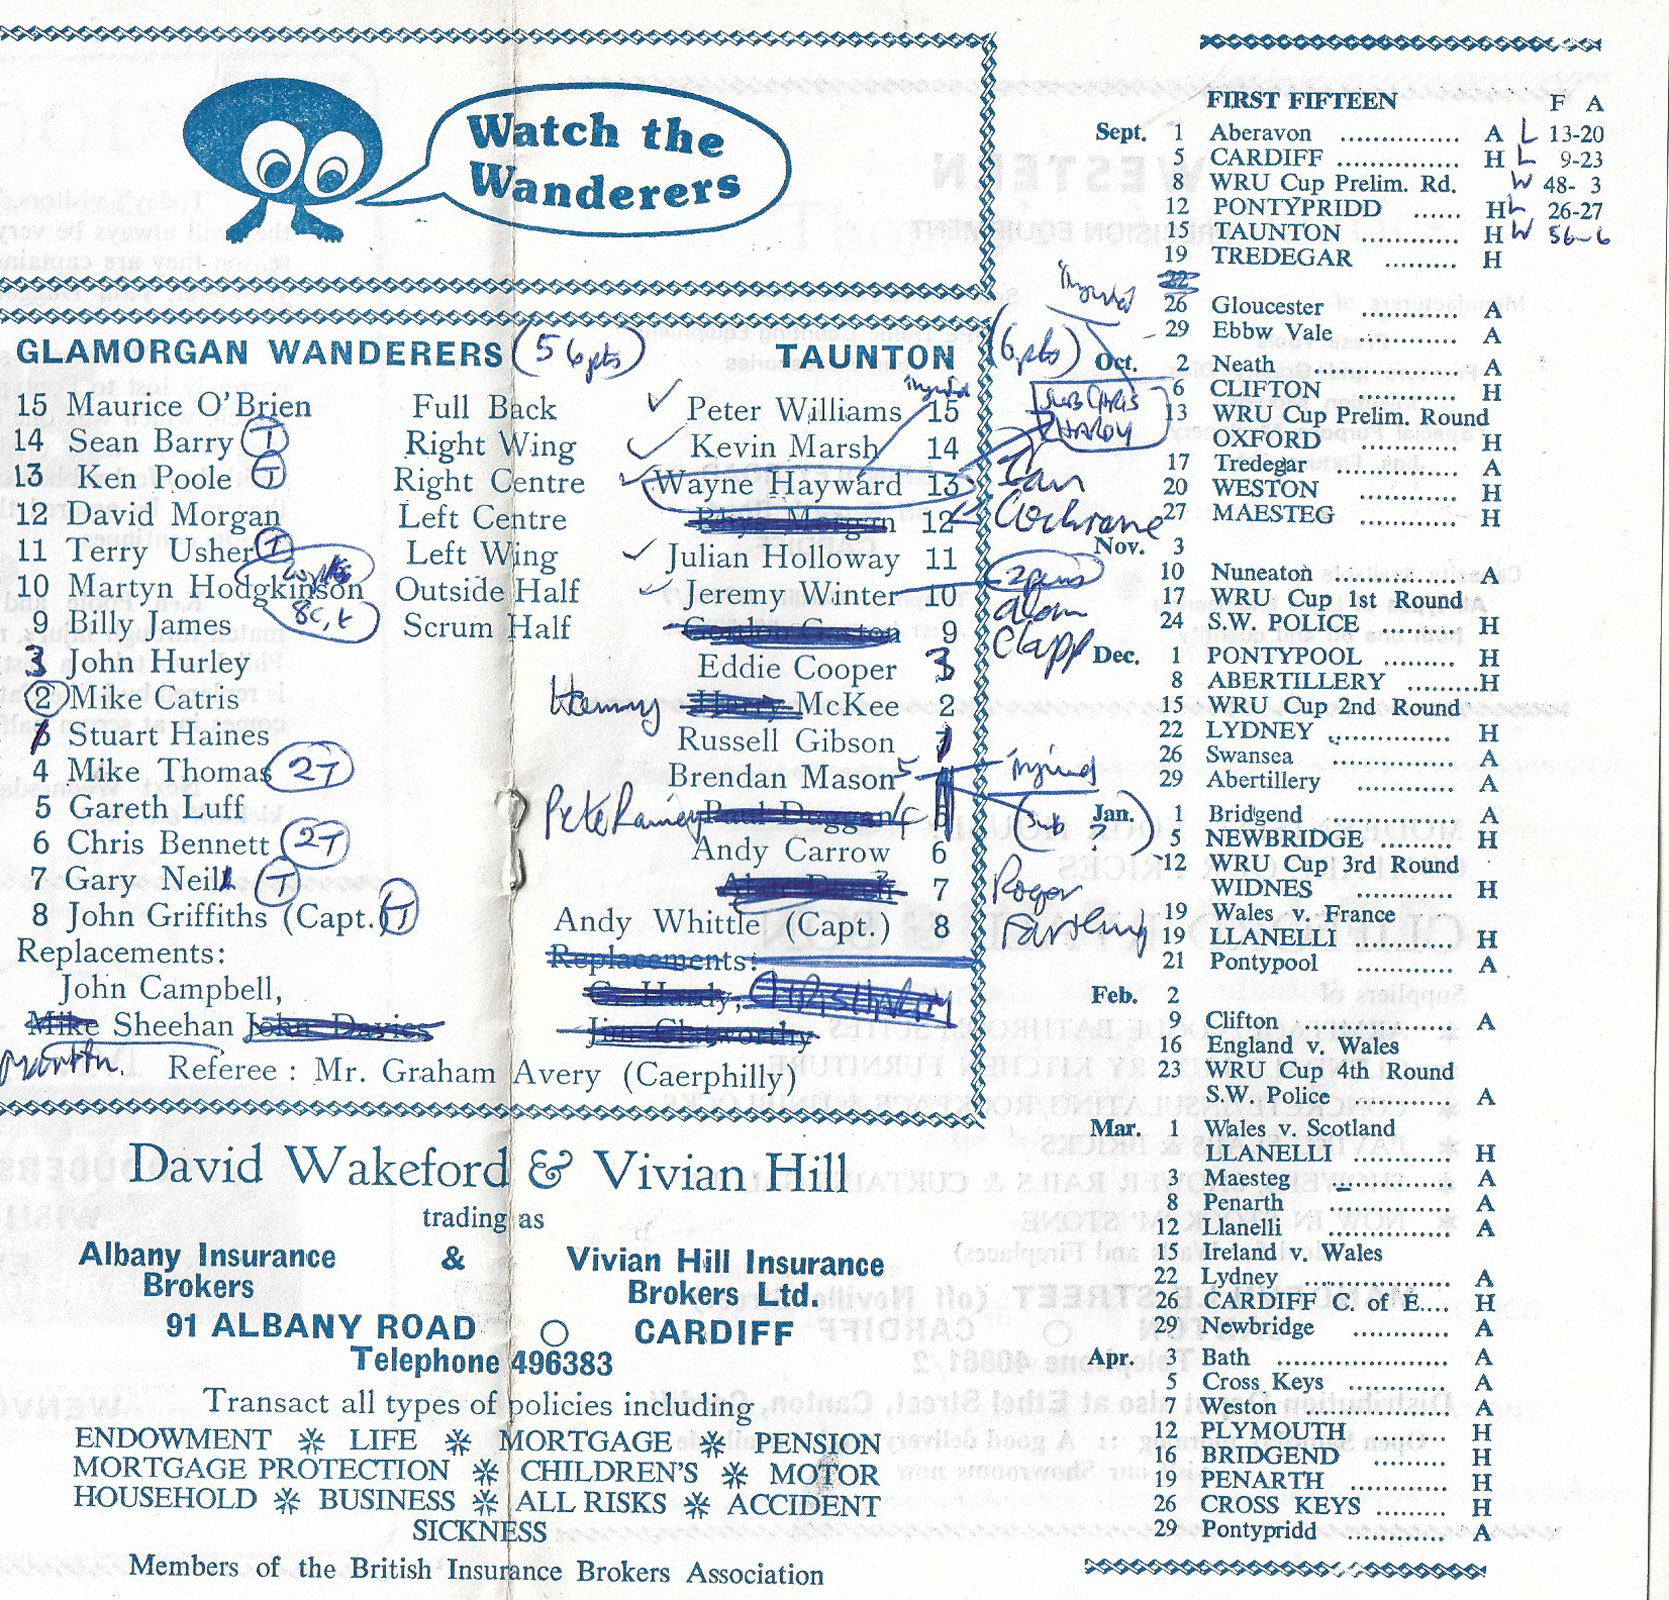 Watch the
Wanderers
GLAMORGAN WANDERERS (56pts) TAUNTON (6pts)
injured
15 Maurice O'Brien Full Back ✓ Peter Williams 15
14 Sean Barry T Right Wing ✓ Kevin Marsh 14
13 Ken Poole T Right Centre ✓ Wayne Hayward 13
SUB CHRIS HARDY
12 David Morgan Left Centre Rhys Morgan 12 Ian Cochrane
11 Terry Usher T Left Wing ✓ Julian Holloway 11
10 Martyn Hodgkinson 8C, t Outside Half ✓ Jeremy Winter 10 2 pens
9 Billy James Scrum Half Gordon Gaston 9 Alan Clapp
3 John Hurley Eddie Cooper 3
2 Mike Catris Henny Harry McKee 2
Stuart Haines Russell Gibson 1
4 Mike Thomas 2T Brendan Mason 5 injured
5 Gareth Luff Pete Rainey Paul Duggan 4 (sub ?)
6 Chris Bennett 2T Andy Carrow 6
7 Gary Neill T 7 Roger
8 John Griffiths (Capt.) T Andy Whittle (Capt.) 8
Replacements: Replacements:
John Campbell, G. Hardy, CHRIS HARDY
Mike Sheehan John Davies Jim Clatworthy
Martin. Referee : Mr. Graham Avery (Caerphilly)
David Wakeford & Vivian Hill
trading as
Albany Insurance & Vivian Hill Insurance
Brokers Brokers Ltd.
91 ALBANY ROAD O CARDIFF
Telephone 496383
Transact all types of policies including
ENDOWMENT ✻ LIFE ✻ MORTGAGE ✻ PENSION
MORTGAGE PROTECTION ✻ CHILDREN'S ✻ MOTOR
HOUSEHOLD ✻ BUSINESS ✻ ALL RISKS ✻ ACCIDENT
SICKNESS
Members of the British Insurance Brokers Association
FIRST FIFTEEN F A
Sept. 1 Aberavon A L 13-20
5 CARDIFF H L 9-23
8 WRU Cup Prelim. Rd. W 48- 3
12 PONTYPRIDD H L 26-27
15 TAUNTON H W 56-6
19 TREDEGAR H
injured 22
26 Gloucester A
29 Ebbw Vale A
Oct. 2 Neath A
6 CLIFTON H
13 WRU Cup Prelim. Round
OXFORD H
17 Tredegar A
20 WESTON H
27 MAESTEG H
Nov. 3
10 Nuneaton A
17 WRU Cup 1st Round
24 S.W. POLICE H
Dec. 1 PONTYPOOL H
8 ABERTILLERY H
15 WRU Cup 2nd Round
22 LYDNEY H
26 Swansea A
29 Abertillery A
Jan. 1 Bridgend A
5 NEWBRIDGE H
12 WRU Cup 3rd Round
WIDNES H
19 Wales v. France
19 LLANELLI H
21 Pontypool A
Feb. 2
9 Clifton A
16 England v. Wales
23 WRU Cup 4th Round
S.W. Police A
Mar. 1 Wales v. Scotland
LLANELLI H
3 Maesteg A
8 Penarth A
12 Llanelli A
15 Ireland v. Wales
22 Lydney A
26 CARDIFF C. of E. H
29 Newbridge A
Apr. 3 Bath A
5 Cross Keys A
7 Weston A
12 PLYMOUTH H
16 BRIDGEND H
19 PENARTH H
26 CROSS KEYS H
29 Pontypridd A